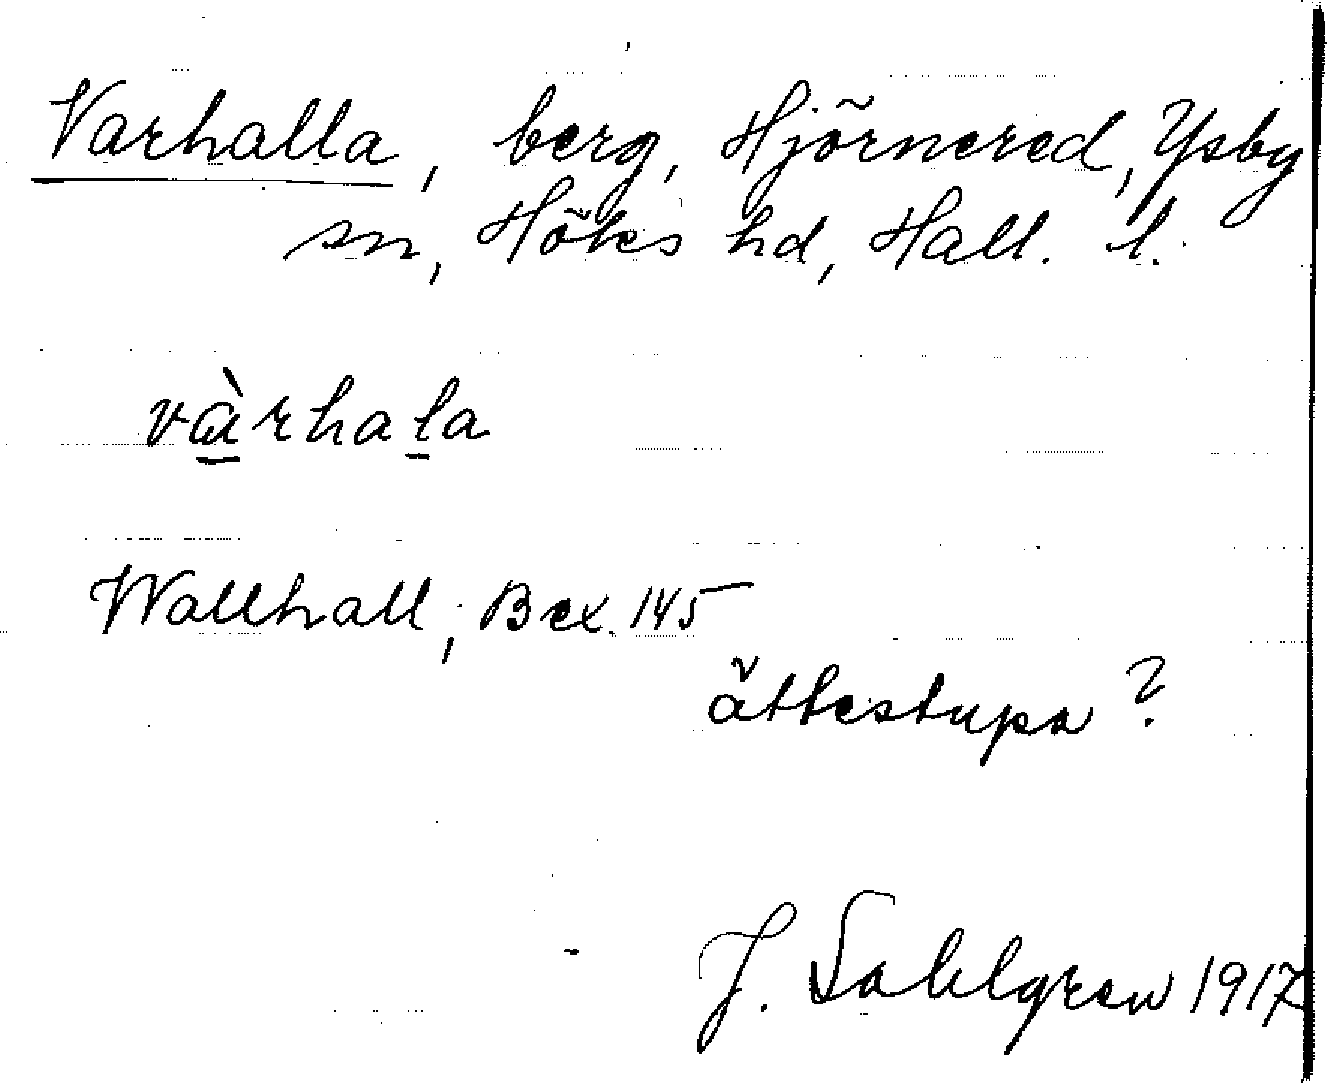 Varhalla, berg, Hjörnered, Ysby
sn, Höks hd, Hall. l.
vàrhala
Wallhall, Bex. 145
ättestupa?
J. Sahlgren 1917